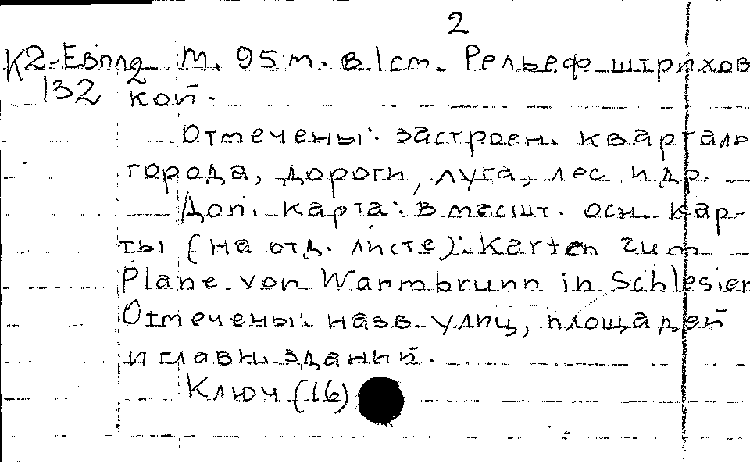 2
К2-Евплд М. 95 m. в 1 cm. Рельеф штрихов
2
132 кой.
Отмечены: застроен. кварталы
города, дороги, луга, лес и др.
Доп. карта: в масшт. осн. кар-
ты (на отд. листе): Karten zum
Plane von Warmbrunn in Schlesien
Отмечены: назв. улиц, площадей
и главн. зданий.
Ключ (16)